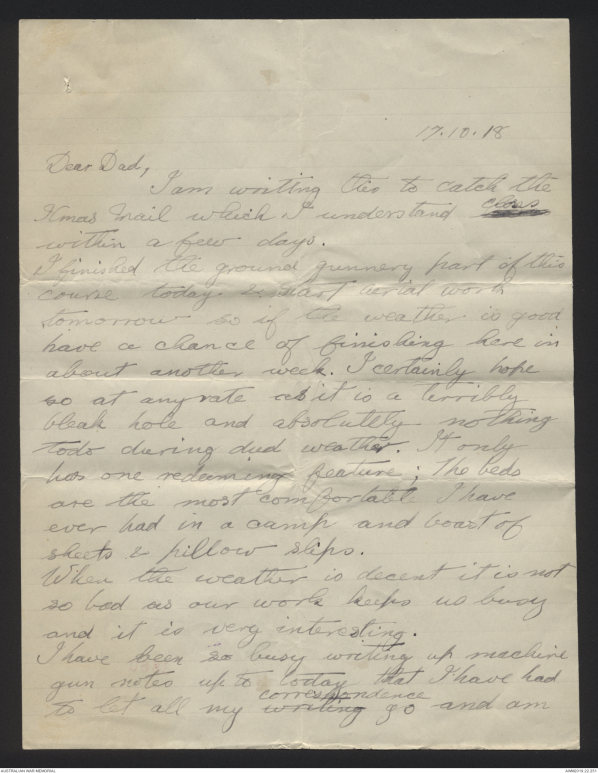 17.10.18
Dear Dad,
I am writing this to catch the
Xmas Mail which I understand closes
within a few days.
I finished the ground gunnery part of this
course today & start aerial work
tomorrow so if the weather is good
have a chance of finishing here in
about another week. I certainly hope
so at any rate as it is a terribly
bleak hole and absolutely nothing
todo during dud weather. It only
has one redeeming feature; The beds
are the most comfortable I have
ever had in a camp and boast of
sheets & pillow slips.
When the weather is decent it is not
so bad as our work keeps us busy
and it is very interesting.
I have been so busy writing up machine
gun notes up to today that I have had
correspondence
to let all my writing go and am
AUSTRALIAN WAR MEMORIAL
AWM2019.22.251